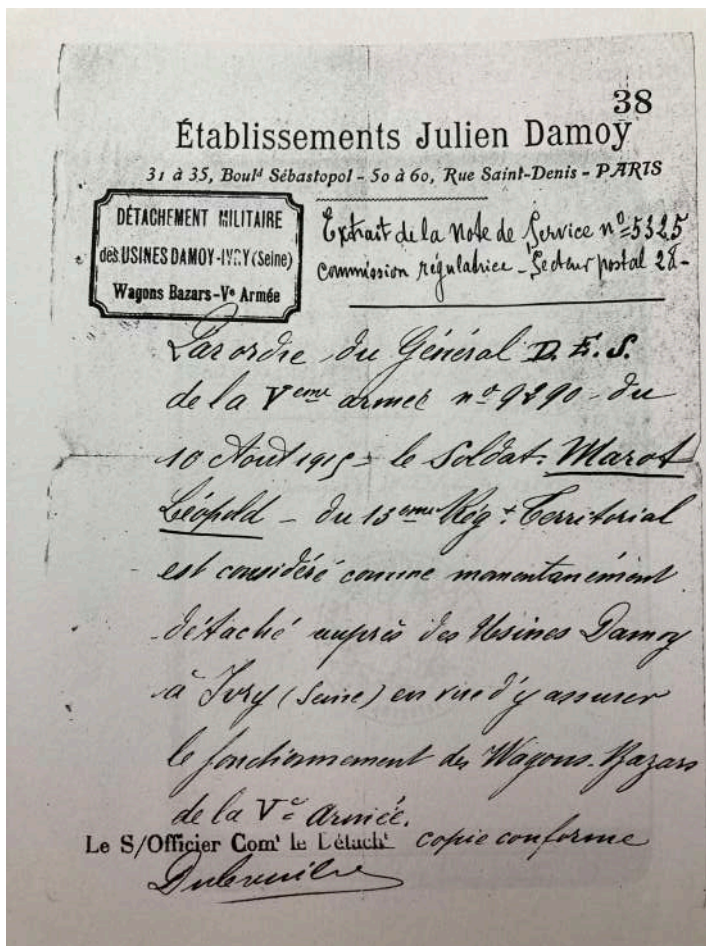 38
Établissements Julien Damoy
31 à 35, Boulᵈ Sébastopol - 50 à 60, Rue Saint-Denis - PARIS
DÉTACHEMENT MILITAIRE
des USINES DAMOY-IVRY (Seine)
Wagons Bazars-Vᵉ Armée
Extrait de la Note de Service nº 5325
commission régulatrice - Secteur postal 28-
Par ordre du Général D.E.S.
de la Vᵉᵐᵉ armée nº 9290 - du
10 Août 1915 - le soldat. Marot
Léopold - du 13ᵉᵐᵉ Régᵗ. Territorial
est considéré comme momentanément
détaché auprès des Usines Damoy
à Ivry (Seine) en vue d'y assurer
le fonctionnement des Wagons-Bazars
de la Vᵉ Armée.
Le S/Officier Comᵗ le Détachᵗ copie conforme